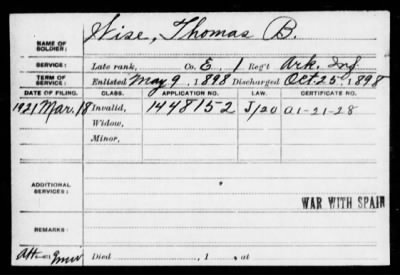 NAME OF SOLDIER: Wise, Thomas B.
SERVICE: Late rank, Co. E, 1 Reg't Ark. Inf
TERM OF SERVICE: Enlisted May 9, 1898 Discharged Oct. 25, 1898
DATE OF FILING. CLASS. APPLICATION NO. LAW. CERTIFICATE NO.
1921 Mar. 18 Invalid, 1448152 J/20 a1-21-28
Widow,
Minor,
ADDITIONAL SERVICES:
WAR WITH SPAIN
REMARKS:
Att- Died , 1 , at